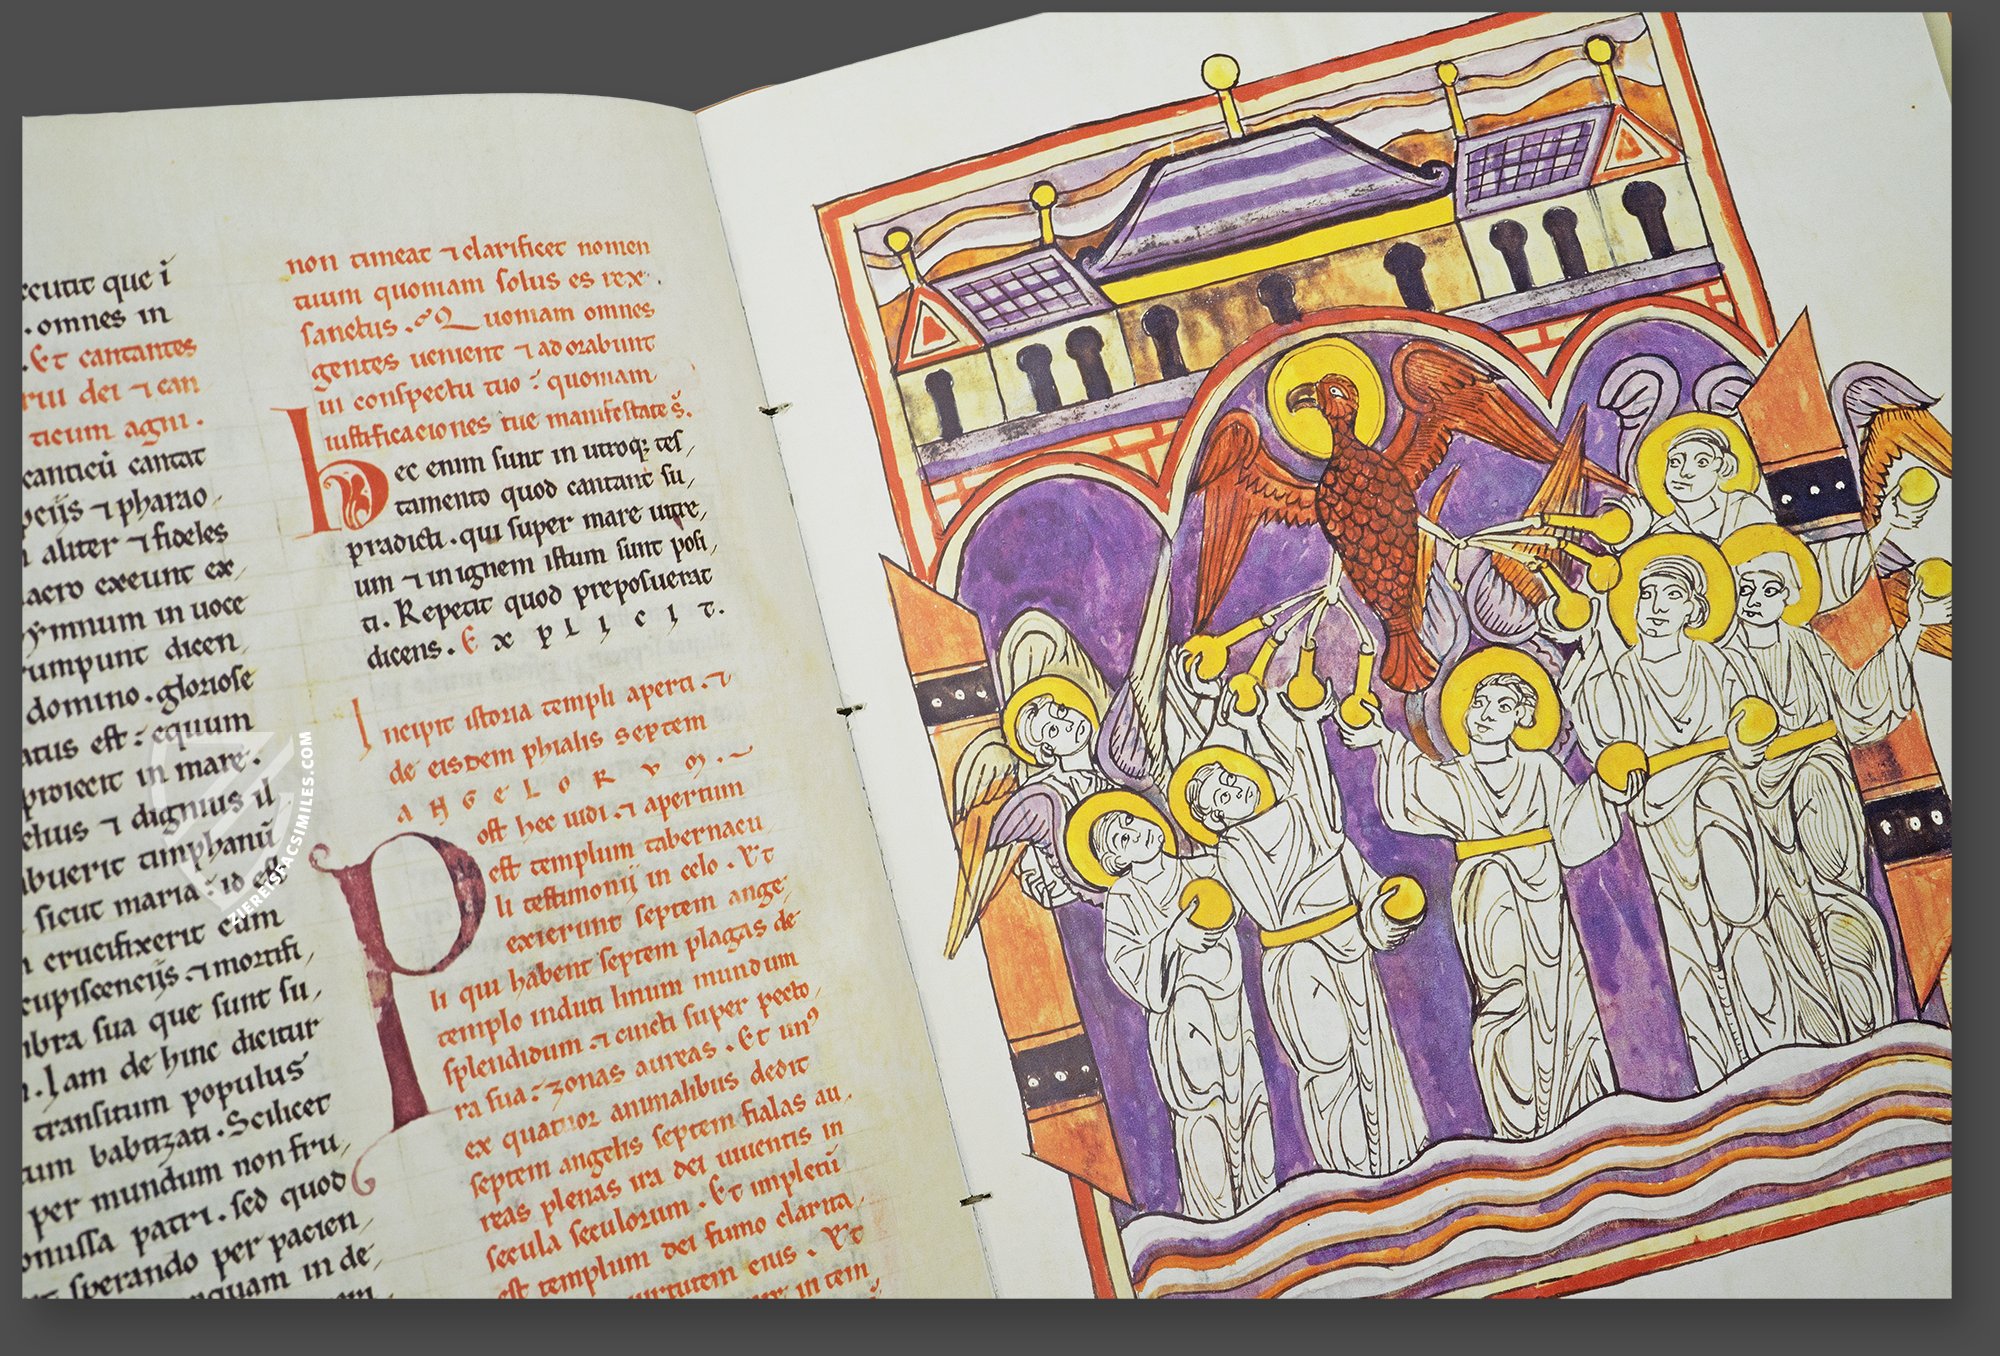 ecutit que i
. omnes in
. Et cantantes
rui dei ⁊ can
ticum agni .
canticū cantat
⁊ pharao
aliter ⁊ fideles
exeunt ex,
ẏmnum in uoce
rumpunt dicen,
domino . gloriose
atus est : equum
proiecit in mare .
⁊ dignius il
abuerit timphanū
sicut maria : id est
crucifixerit eam
cupiscencijs . ⁊ mortifi,
bra sua que sunt su,
. Iam de hinc dicitur
transitum populus
tum babtizati . Scilicet
per mundum non fru,
omissa patri . sed quod
sperando per pacien,
quam in de,
non timeat ⁊ clarificet nomen
tuum quoniam solus es rex .
sanctus . Quoniam omnes
gentes uenient ⁊ adorabunt
in conspectu tuo : quoniam
iustificaciones tue manifestate s̄.
hec enim sunt in utroq; tes,
tamento quod cantant su,
pradicti . qui super mare uitre,
um ⁊ in ignem istum sunt posi,
ti. Repetit quod preposuerat
dicens . Explicit.
Incipit istoria templi aperti . ⁊
de eisdem phialis septem
angelorum .
Post hec uidi . ⁊ apertum
est templum tabernacu,
li testimonij in celo . Et
exierunt septem ange,
li qui habent septem plagas de
templo induti linum mundum
splendidum . ⁊ cincti super pecto,
ra sua : zonas aureas . Et unꝰ
ex quatuor animalibus dedit
septem angelis septem fialas au,
reas plenas ira dei uiuentis in
secula seculorum . Et impletū
est templum dei fumo clarita,
uirtutem eius . Et
in tem
ZIEREISFACSIMILES.COM